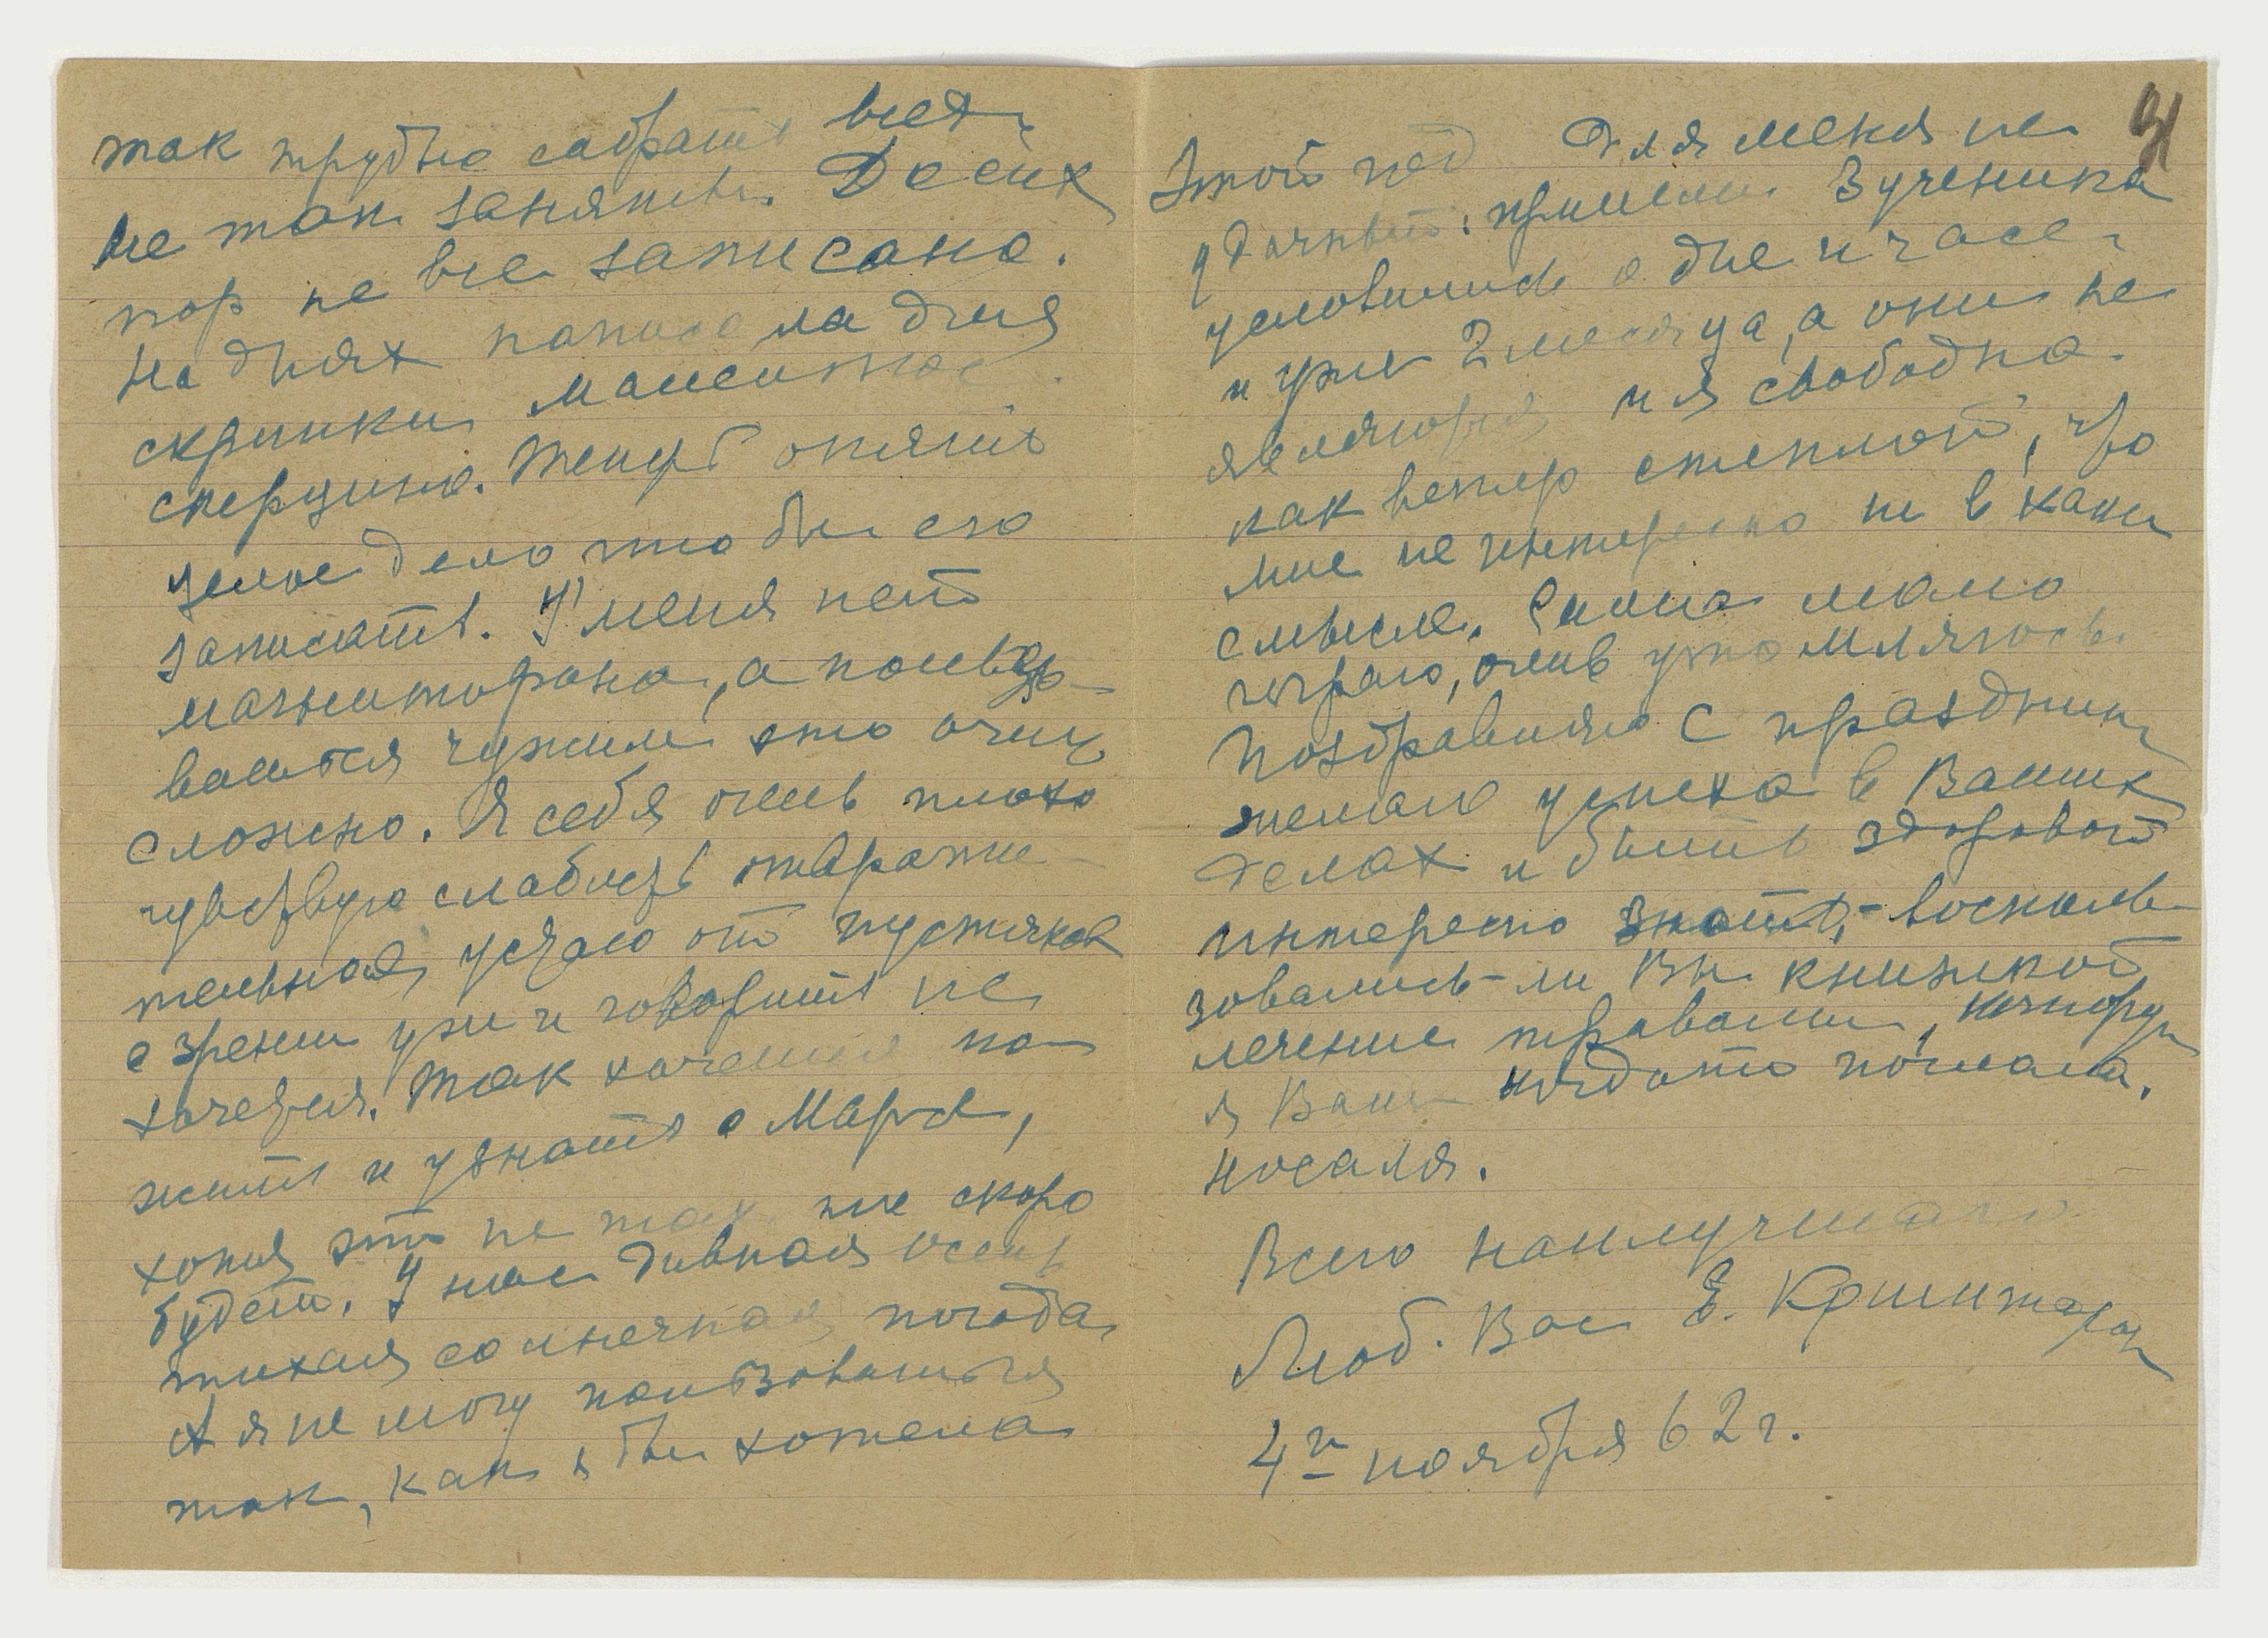 так трудно собрать всех
все так заняты. До сих
пор не все записано.
На днях написала для
скрипки маленькое
скерцино. Теперь опять
целое дело чтобы его
записать. У меня нет
магнитофона, а пользо-
ваться чужим это очень
сложно. Я себя очень плохо
чувствую слабость отврати-
тельная, устаю от пустяков
с зрением уж и говорить не
хочется. Так хочется по-
жить и узнать о Марсе,
хотя это не так не скоро
будет. У нас дивная осень
тихая солнечная погода
А я не могу пользоваться
так, как бы хотела
91
Этот год для меня не
удачный: пришли 3 ученика
условились о дне и часе
и уже 2 месяца, а они не
являются и я свободна.
как ветер степной, что
мне не интересно ни в каком
смысле. Сама мало
играю, очень утомляюсь
Поздравляю с праздником
желаю успеха в Ваших
делах и быть здоровой
интересно знать, - воскполь-
зовались-ли Вы книжкой
лечение травами, которую
я Вам когда то послала.
Всего наилучшего
Люб. Вас Е.
4го ноября 62 г.